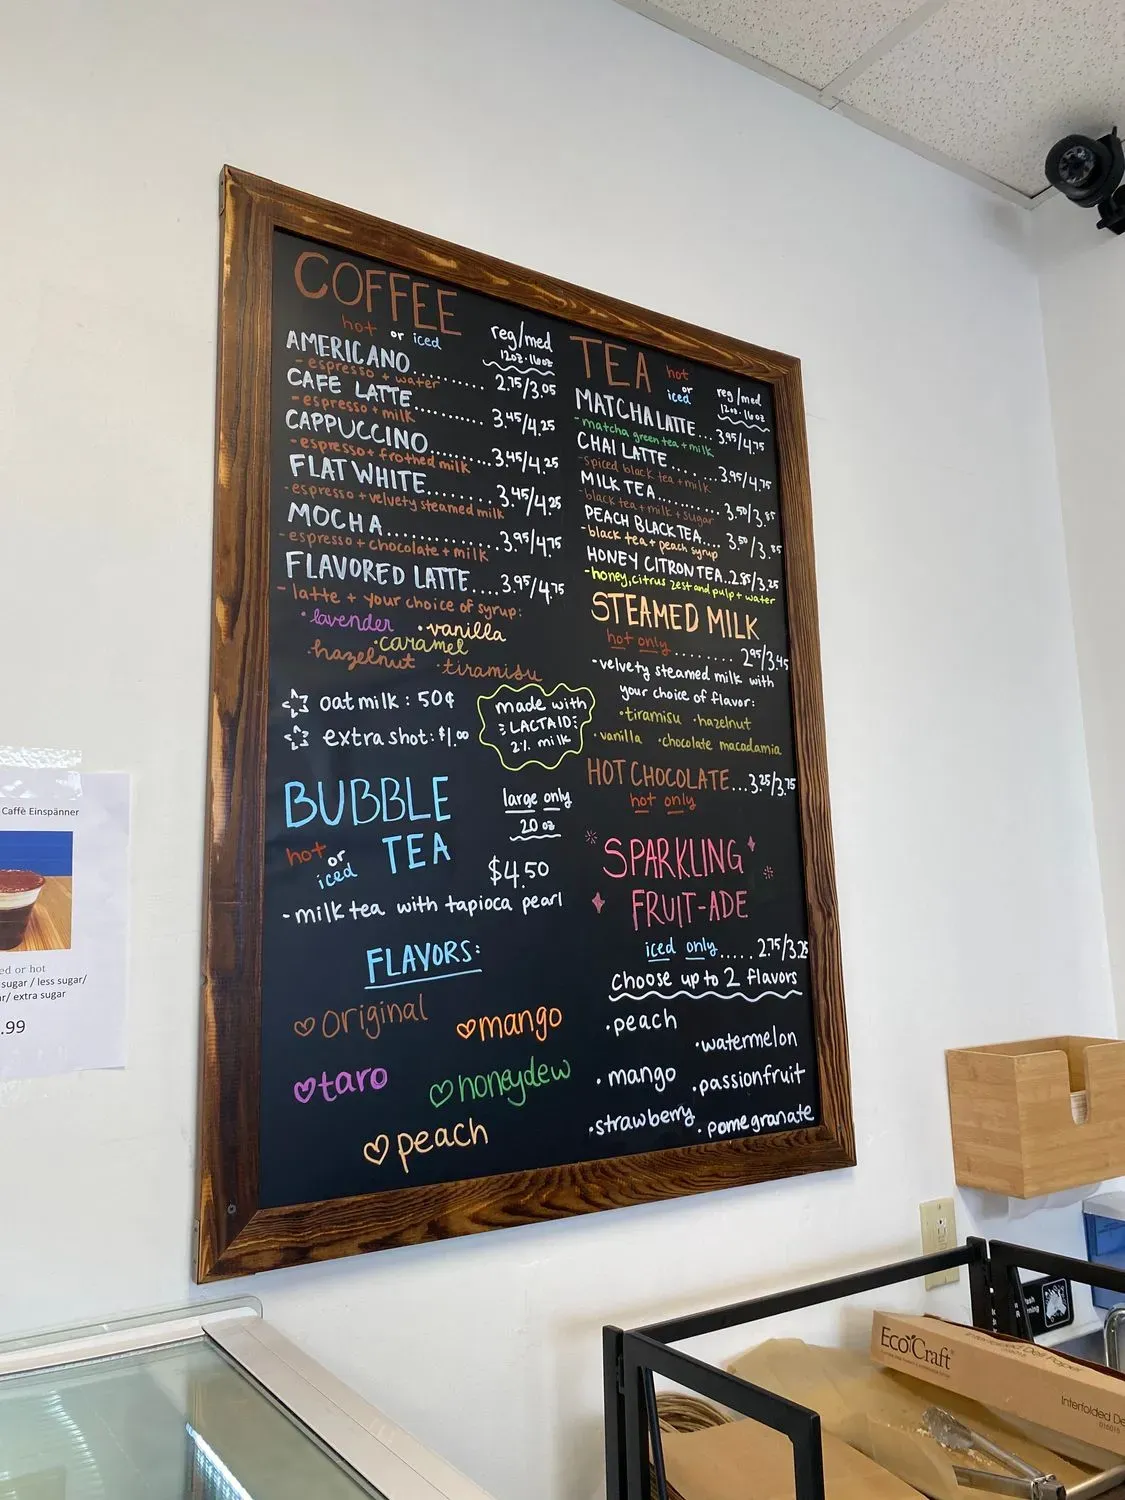 COFFEE
hot or iced
reg/med
12oz · 16oz
AMERICANO.......... 2.75/3.05
- espresso + water
CAFE LATTE.......... 3.45/4.25
- espresso + milk
CAPPUCCINO.......... 3.45/4.25
- espresso + frothed milk
FLAT WHITE........ 3.45/4.25
- espresso + velvety steamed milk
MOCHA.............. 3.95/4.75
- espresso + chocolate + milk
FLAVORED LATTE.... 3.95/4.75
- latte + your choice of syrup:
· lavender · vanilla
· caramel
· hazelnut · tiramisu
oat milk: 50¢
extra shot: $1.00
made with
LACTAID
2% milk
BUBBLE
TEA
hot or iced
large only
20 oz
$4.50
- milk tea with tapioca pearl
FLAVORS:
♡ original
♡ mango
♡ taro
♡ honeydew
♡ peach
TEA
hot or iced
reg/med
12oz · 16oz
MATCHA LATTE... 3.95/4.75
- matcha green tea + milk
CHAI LATTE....... 3.95/4.75
- spiced black tea + milk
MILK TEA......... 3.50/3.85
- black tea + milk + sugar
PEACH BLACK TEA.... 3.50/3.85
- black tea + peach syrup
HONEY CITRON TEA..2.85/3.25
- honey, citrus zest and pulp + water
STEAMED MILK
hot only......... 2.95/3.45
- velvety steamed milk with
your choice of flavor:
· tiramisu · hazelnut
· vanilla · chocolate macadamia
HOT CHOCOLATE...3.25/3.75
hot only
SPARKLING
FRUIT-ADE
iced only..... 2.75/3.25
Choose up to 2 flavors
· peach
· watermelon
· mango
· passionfruit
· strawberry
· pomegranate
Caffè Einspänner
ed or hot
sugar / less sugar/
r/ extra sugar
.99
EcoCraft
Interfolded Deli Paper
Interfolded De